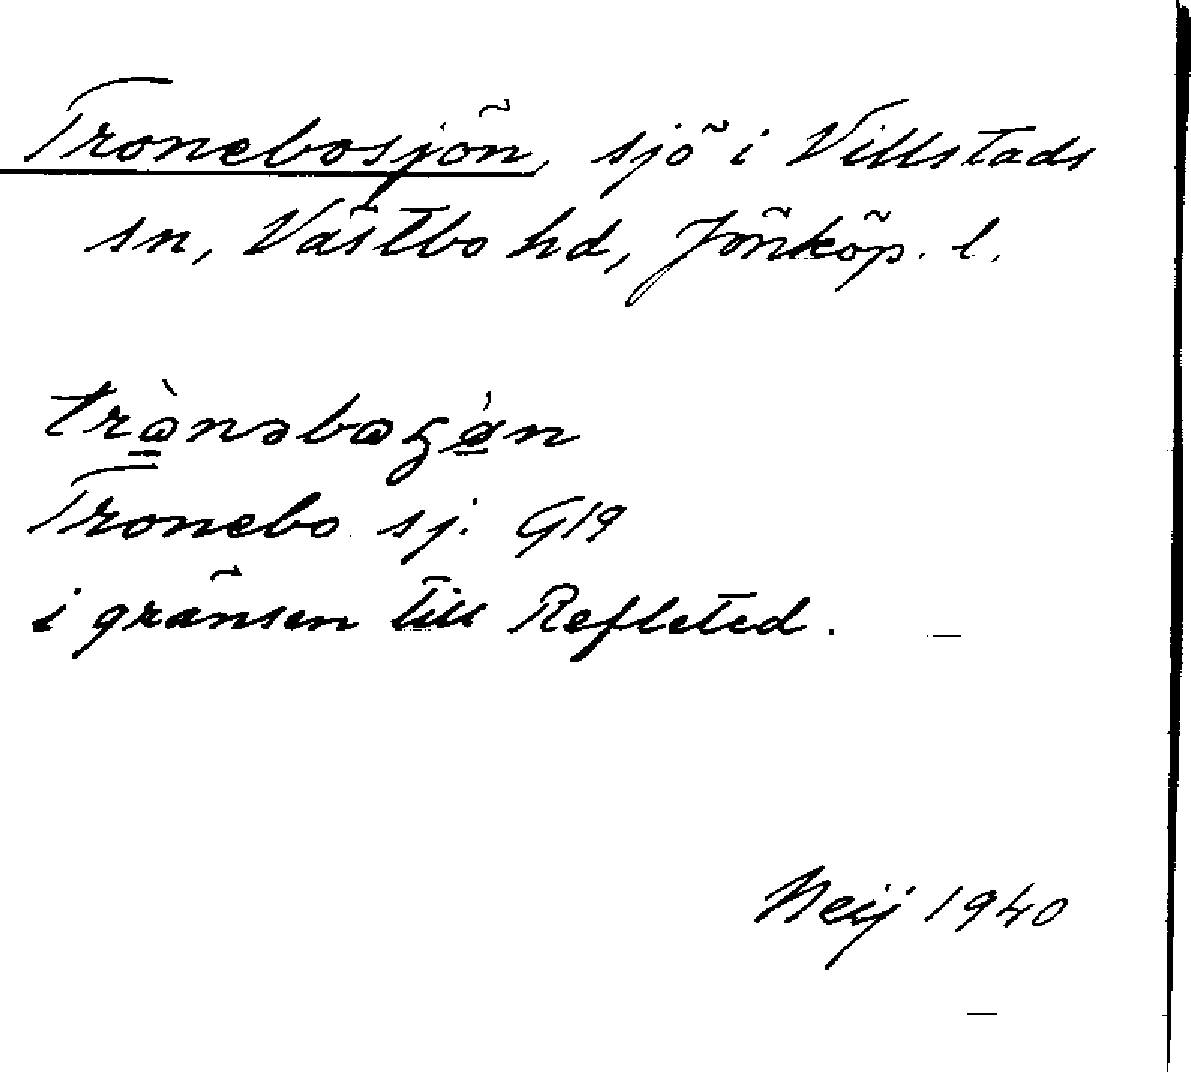 Tronebosjön, sjö i Villstads
sn, Västbo hd, Jönköp. l.
Tronebo sj. G19
i gränsen till Refteled.
Neij 1940